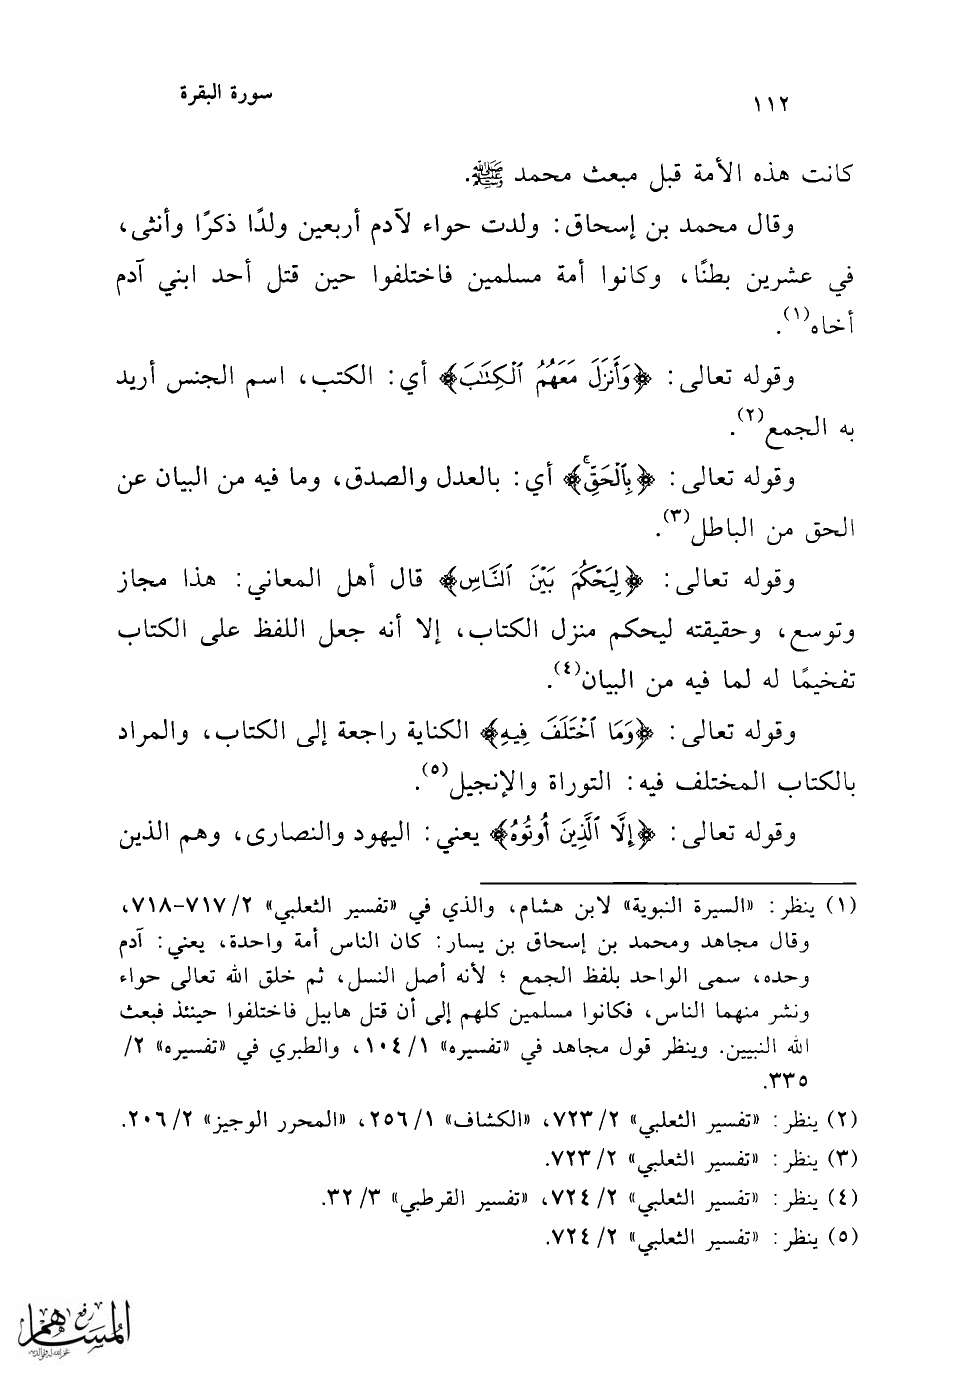 ١١٢ سورة البقرة
كانت هذه الأمة قبل مبعث محمد ﷺ.
وقال محمد بن إسحاق: ولدت حواء لآدم أربعين ولدًا ذكرًا وأنثى،
في عشرين بطنًا، وكانوا أمة مسلمين فاختلفوا حين قتل أحد ابني آدم
أخاه(١).
وقوله تعالى: ﴿وَأَنزَلَ مَعَهُمُ ٱلْكِتَٰبَ﴾ أي: الكتب، اسم الجنس أريد
به الجمع(٢).
وقوله تعالى: ﴿بِٱلْحَقِّۚ﴾ أي: بالعدل والصدق، وما فيه من البيان عن
الحق من الباطل(٣).
وقوله تعالى: ﴿لِيَحْكُمَ بَيْنَ ٱلنَّاسِ﴾ قال أهل المعاني: هذا مجاز
وتوسع، وحقيقته ليحكم منزل الكتاب، إلا أنه جعل اللفظ على الكتاب
تفخيمًا له لما فيه من البيان(٤).
وقوله تعالى: ﴿وَمَا ٱخْتَلَفَ فِيهِ﴾ الكناية راجعة إلى الكتاب، والمراد
بالكتاب المختلف فيه: التوراة والإنجيل(٥).
وقوله تعالى: ﴿إِلَّا ٱلَّذِينَ أُوتُوهُ﴾ يعني: اليهود والنصارى، وهم الذين
(١) ينظر: «السيرة النبوية» لابن هشام، والذي في «تفسير الثعلبي» ٢/ ٧١٧-٧١٨،
وقال مجاهد ومحمد بن إسحاق بن يسار: كان الناس أمة واحدة، يعني: آدم
وحده، سمى الواحد بلفظ الجمع ؛ لأنه أصل النسل، ثم خلق الله تعالى حواء
ونشر منهما الناس، فكانوا مسلمين كلهم إلى أن قتل هابيل فاختلفوا حينئذ فبعث
الله النبيين. وينظر قول مجاهد في «تفسيره» ١/ ١٠٤، والطبري في «تفسيره» ٢/
٣٣٥.
(٢) ينظر: «تفسير الثعلبي» ٢/ ٧٢٣، «الكشاف» ١/ ٢٥٦، «المحرر الوجيز» ٢/ ٢٠٦.
(٣) ينظر: «تفسير الثعلبي» ٢/ ٧٢٣.
(٤) ينظر: «تفسير الثعلبي» ٢/ ٧٢٤، «تفسير القرطبي» ٣/ ٣٢.
(٥) ينظر: «تفسير الثعلبي» ٢/ ٧٢٤.
رفع
المساهم